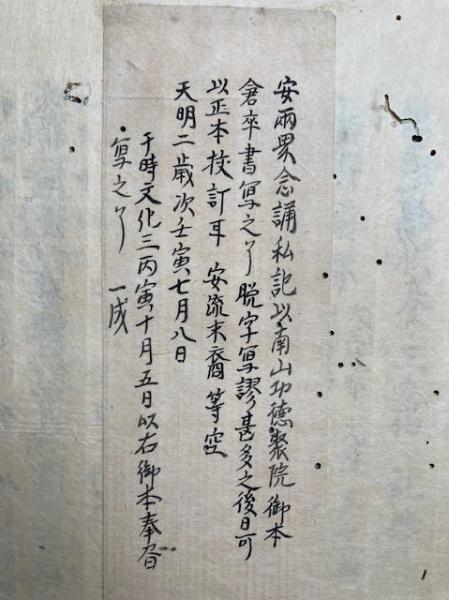 安両界念誦私記以南山功徳聚院御本
倉卒書写之了脱字写謬甚多之後日可
以正本挍訂耳 安流末裔等空
天明二歳次壬寅七月八日
于時文化三丙寅十月五日以右御本奉
写之了 一成